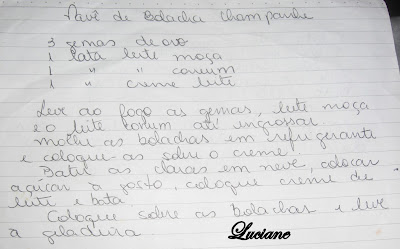 Pavê de Bolacha Champanhe
3 gemas de ovo
1 lata leite moça
1 " " comum
1 " creme leite
Leve ao fogo as gemas, leite moça
e o leite comum até ingrossar
molhe as bolachas em refrigerante
e coloque-as sobre o creme
Bater as claras em neve, colocar
açúcar à gosto, coloque creme de
leite e bata.
Coloque sobre as bolachas e leve
a geladeira
Luciane